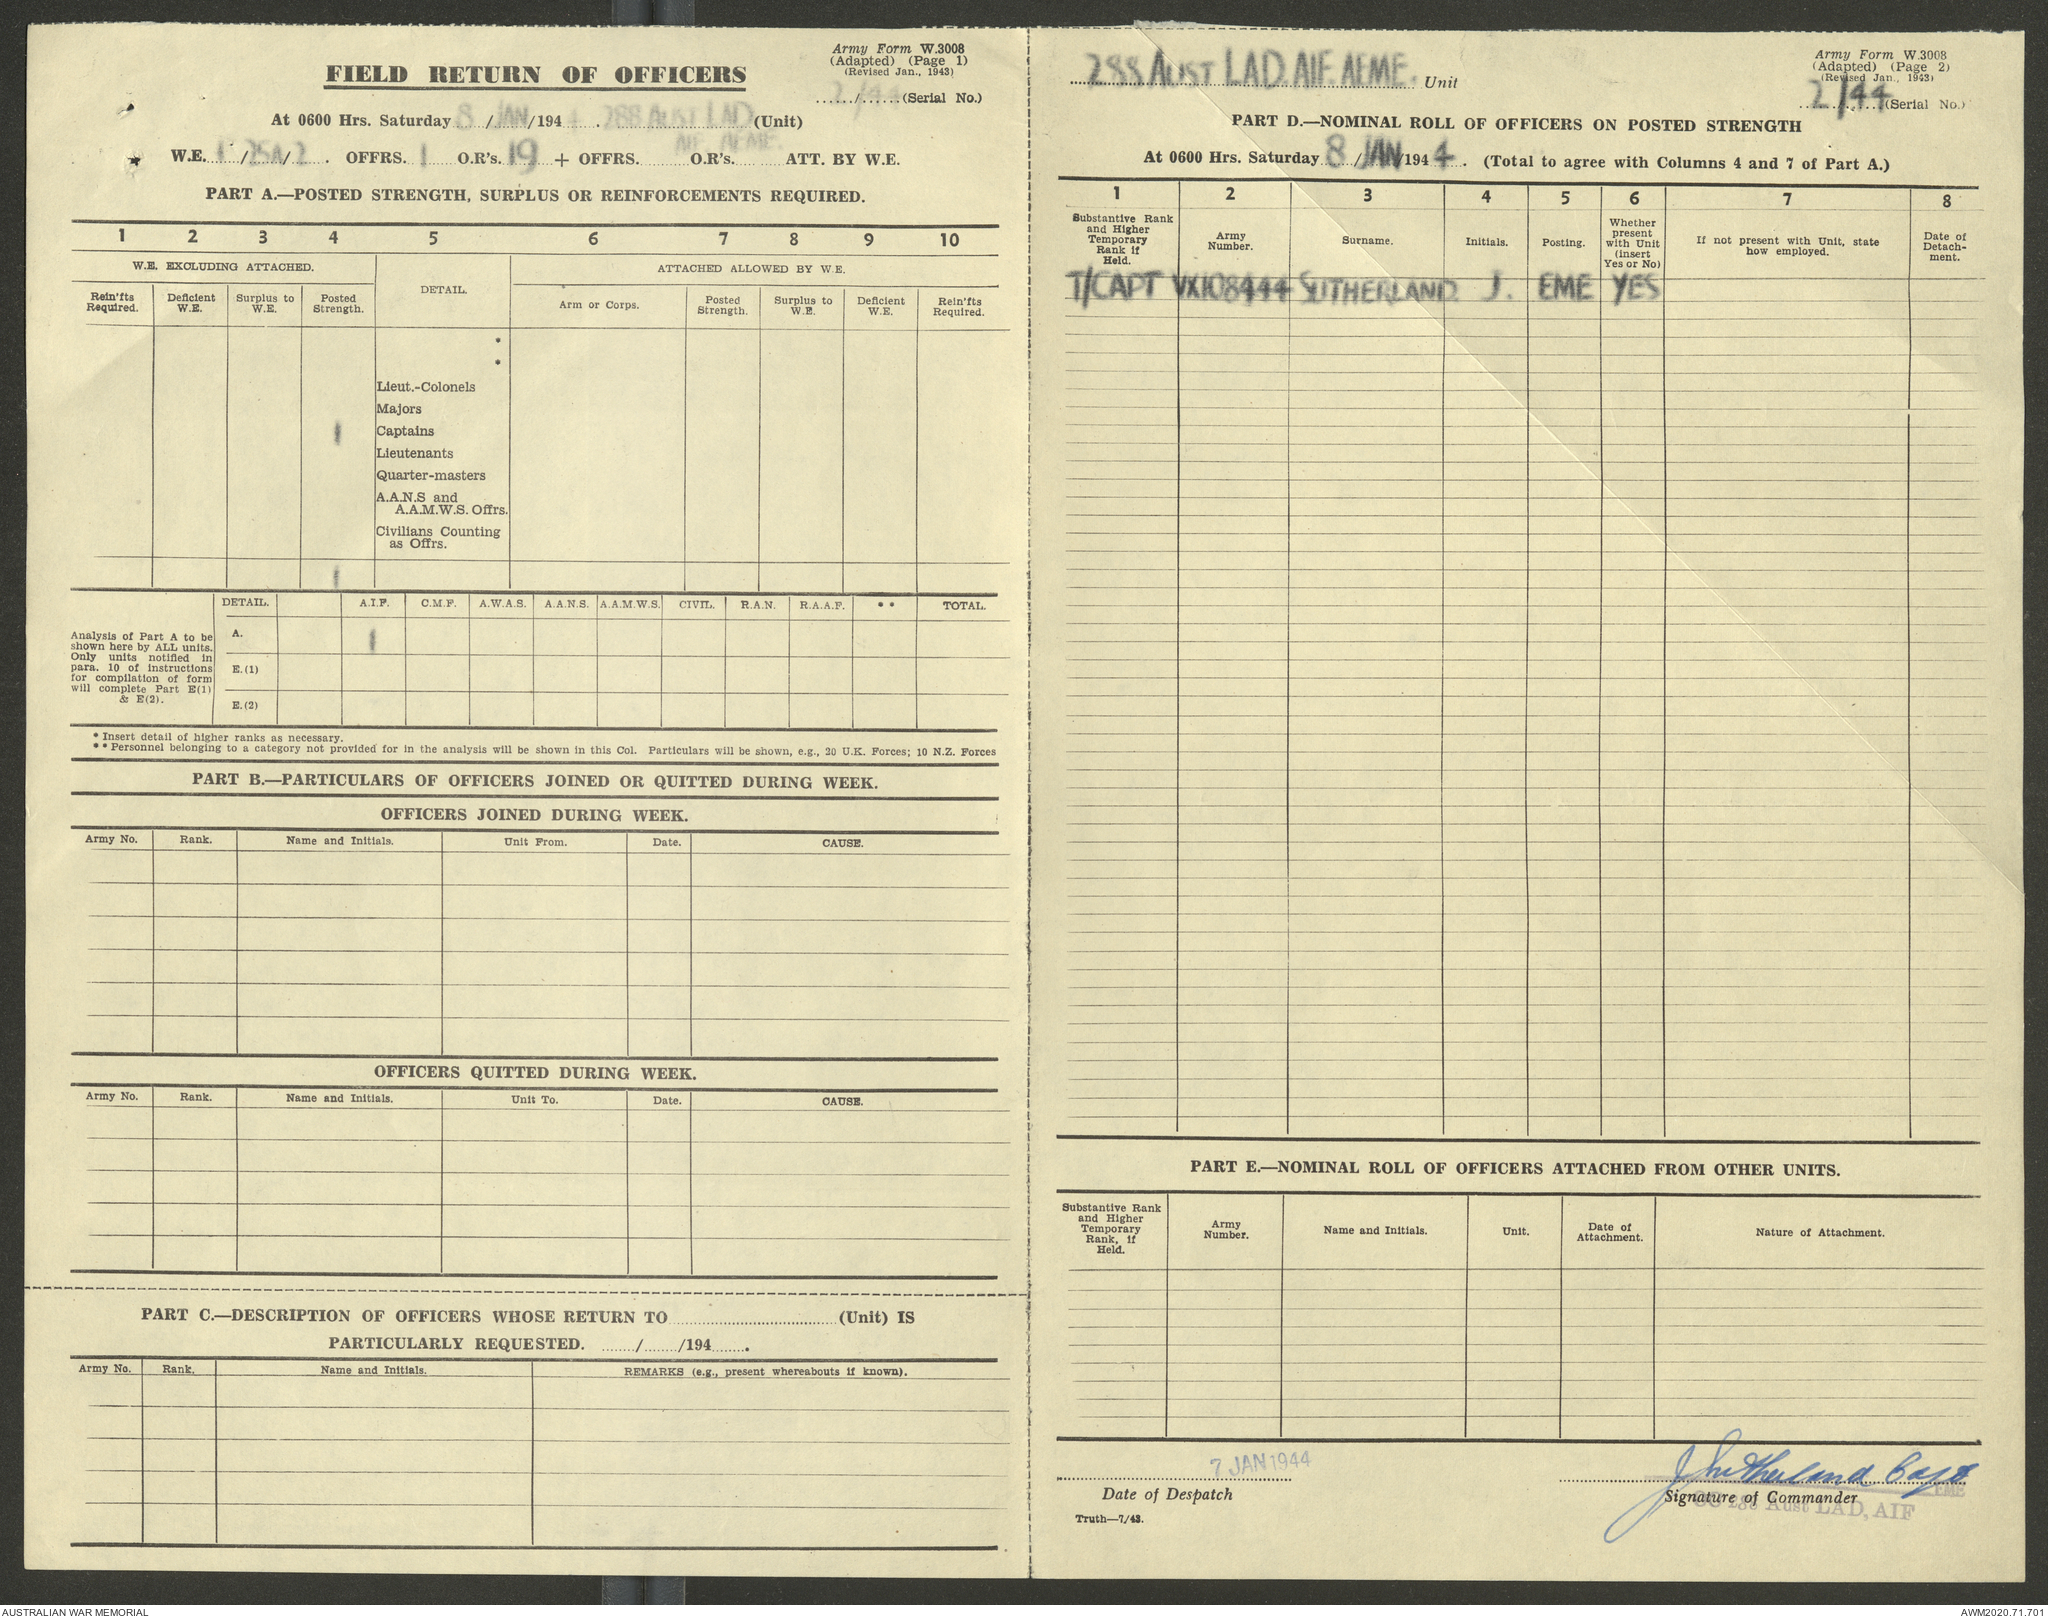 Army Form W.3008
(Adapted) (Page 1)
(Revised Jan., 1943)
FIELD RETURN OF OFFICERS
2/44 (Serial No.)
At 0600 Hrs. Saturday 8 / JAN /194 4 . 288 AUST LAD (Unit)
AIF. AEME.
W.E. / 25A / 2 . OFFRS. 1 O.R's. 19 + OFFRS. ...... O.R's. ...... ATT. BY W.E.
PART A.—POSTED STRENGTH, SURPLUS OR REINFORCEMENTS REQUIRED.
1 2 3 4 5 6 7 8 9 10
W.E. EXCLUDING ATTACHED. DETAIL. ATTACHED ALLOWED BY W.E.
Rein'fts Required. Deficient W.E. Surplus to W.E. Posted Strength. Arm or Corps. Posted Strength. Surplus to W.E. Deficient W.E. Rein'fts Required.
*
*
Lieut.-Colonels
Majors
1 Captains
Lieutenants
Quarter-masters
A.A.N.S and
A.A.M.W.S. Offrs.
Civilians Counting
as Offrs.
1
DETAIL. A.I.F. C.M.F. A.W.A.S. A.A.N.S. A.A.M.W.S. CIVIL. R.A.N. R.A.A.F. ** TOTAL.
Analysis of Part A to be
shown here by ALL units.
Only units notified in
para. 10 of instructions
for compilation of form
will complete Part E(1)
& E(2).
A. 1
E.(1)
E.(2)
* Insert detail of higher ranks as necessary.
** Personnel belonging to a category not provided for in the analysis will be shown in this Col. Particulars will be shown, e.g., 20 U.K. Forces; 10 N.Z. Forces
PART B.—PARTICULARS OF OFFICERS JOINED OR QUITTED DURING WEEK.
OFFICERS JOINED DURING WEEK.
Army No. Rank. Name and Initials. Unit From. Date. CAUSE.
OFFICERS QUITTED DURING WEEK.
Army No. Rank. Name and Initials. Unit To. Date. CAUSE.
PART C.—DESCRIPTION OF OFFICERS WHOSE RETURN TO ...... (Unit) IS
PARTICULARLY REQUESTED. ....../....../194.......
Army No. Rank. Name and Initials. REMARKS (e.g., present whereabouts if known).
Army Form W.3008
(Adapted) (Page 2)
(Revised Jan., 1943)
288 AUST LAD. AIF. AEME. Unit
2/44 (Serial No.)
PART D.—NOMINAL ROLL OF OFFICERS ON POSTED STRENGTH
At 0600 Hrs. Saturday 8 / JAN /194 4 . (Total to agree with Columns 4 and 7 of Part A.)
1 2 3 4 5 6 7 8
Substantive Rank and Higher Temporary Rank if Held. Army Number. Surname. Initials. Posting. Whether present with Unit (insert Yes or No) If not present with Unit, state how employed. Date of Detach-ment.
T/CAPT VX108444 SUTHERLAND J. EME YES
PART E.—NOMINAL ROLL OF OFFICERS ATTACHED FROM OTHER UNITS.
Substantive Rank and Higher Temporary Rank, if Held. Army Number. Name and Initials. Unit. Date of Attachment. Nature of Attachment.
7 JAN 1944
Date of Despatch
J Sutherland Capt
EME
Signature of Commander
OC 288 Aust LAD, AIF
Truth—7/43.
AUSTRALIAN WAR MEMORIAL
AWM2020.71.701